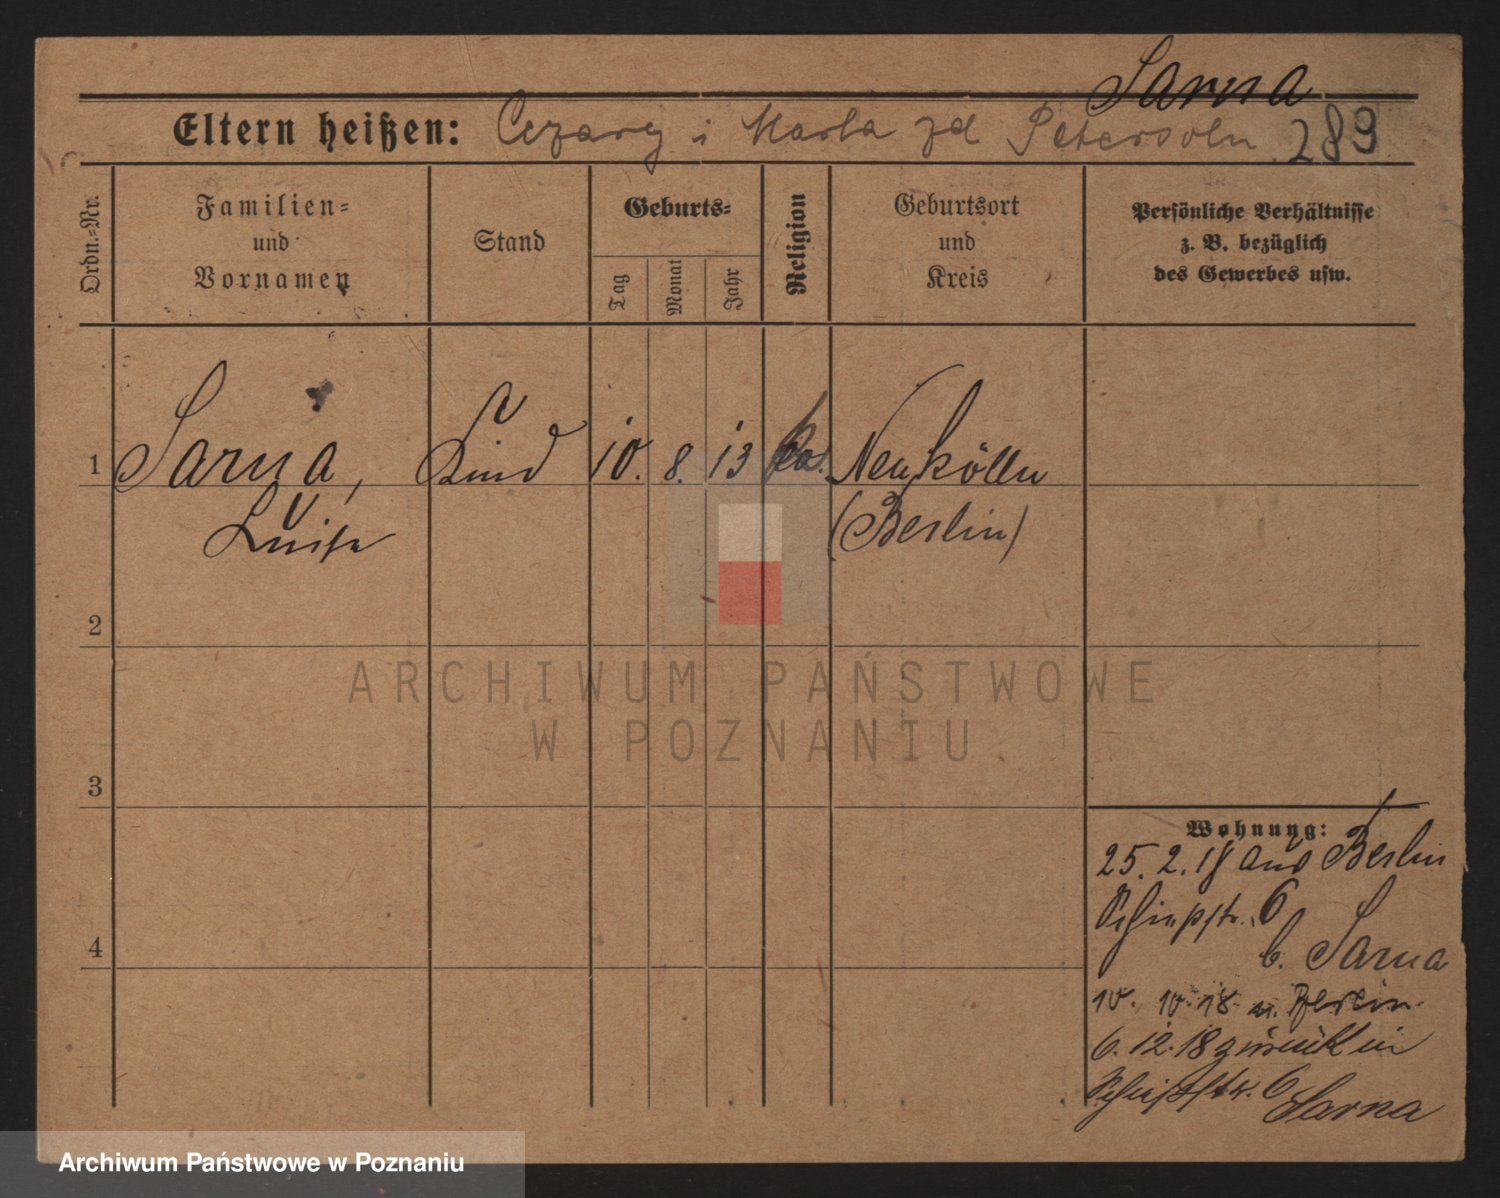 Sarna
Eltern heißen: Cezary i Marta zd Petersohn 289
Ordn.-Nr.
Familien-
und
Vornamen
Stand
Geburts-
Tag
Monat
Jahr
Religion
Geburtsort
und
Kreis
Persönliche Verhältnisse
z. B. bezüglich
des Gewerbes usw.
1 Sarna, Kind 10. 8. 13 Neukölln
Luise (Berlin)
2
3
4
Wohnung:
25. 2. 18 aus Berlin
6
b. Sarna
10. 10 18 n. Berlin
6. 12. 18 zurück in
6 Sarna
ARCHIWUM PAŃSTWOWE
W POZNANIU
Archiwum Państwowe w Poznaniu